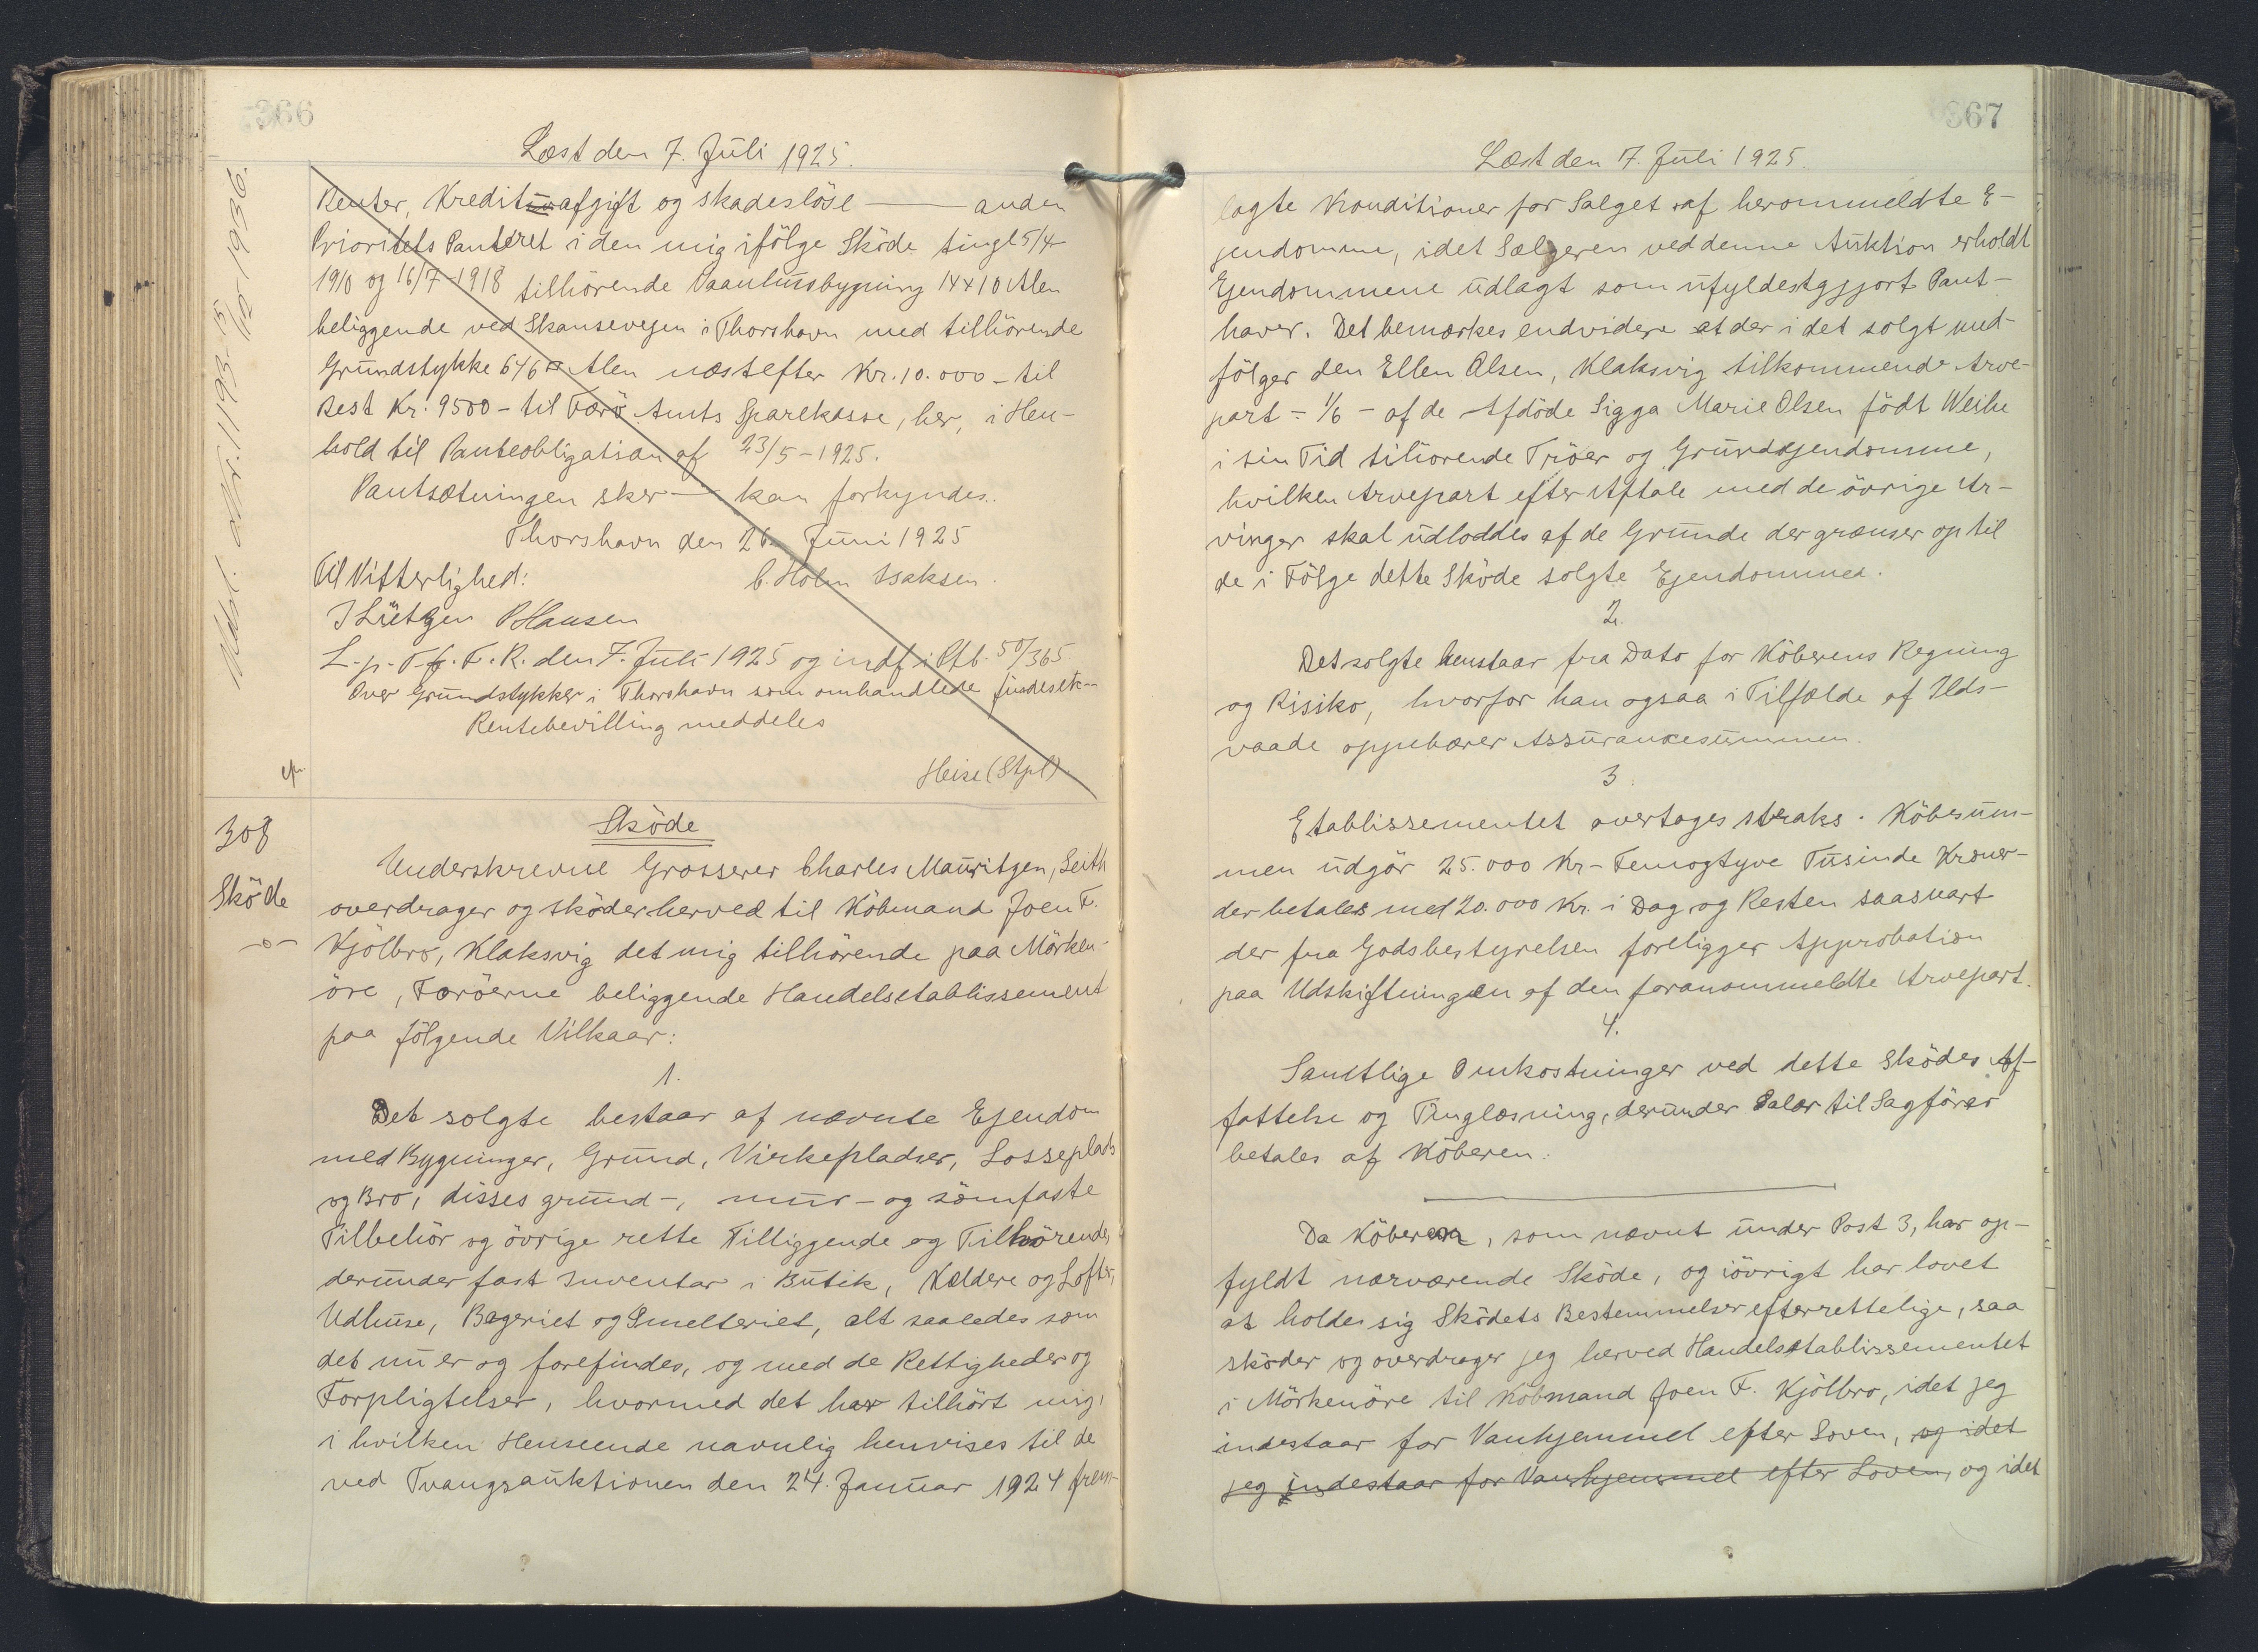 366
Læst den 7. Juli 1925.
Udsl. Nr. 1193- 15/10-1936.
Renter, Kreditafgift og skadesløse —— anden
Prioritets Panteret i den mig ifölge Sköde tingl 5/4
1910 og 16/7-1918 tilhörende Vaanhusbygning 14x10 Alen
beliggende ved Skansevejen i Thorshavn med tilhörende
Grundstykke 646 □ Alen næstefter Kr. 10.000 - til
Rest Kr. 9500 - til Færö Amts Sparekasse, her, i Hen-
hold til Panteobligation af 23/5-1925.
Pantsætningen sker — kan forkyndes.
Thorshavn den 26 Juni 1925
Til Vitterlighed:
C. Holm Isaksen.
J Lützen PHansen
L. p. T. f. F. R. den 7. Juli 1925 og indf i Ptb. 50/365
Over Grundstykker i Thorshavn som omhandlede findes ek-
Rentebevilling meddeles
Heise (Stpl)
308
Sköde
-o-
Sköde
Underskrevne Grosserer Charles Mauritzen, Leith
overdrager og sköder herved til Köbmand Joen F.
Kjölbro, Klaksvig det mig tilhörende paa Mörken-
öre, Færöerne beliggende Handelsetablissement
paa fölgende Vilkaar:
1.
Det solgte bestaar af nævnte Ejendom
med Bygninger, Grund, Virkepladser, Losseplads
og Bro, disses grund-, mur- og sömfaste
Tilbehör og övrige rette Tilliggende og Tilhörende,
derunder fast Inventar i Butik, Kældere og Lofter,
Udhuse, Bageriet og Smelteriet, alt saaledes som
det nu er og forefindes, og med de Rettigheder og
Forpligtelser, hvormed det har tilhört mig,
i hvilken Henseende navnlig henvises til de
ved Tvangsauktionen den 24. Januar 1924 frem-
367
Læst den 7. Juli 1925.
lagte Konditioner for Salget af herommeldte E-
jendomme, idet Sælgeren ved denne Auktion erholdt
Ejendommene udlagt som ufyldestgjort Pant-
haver. Det bemærkes endvidere at der i det solgt med-
fölger den Ellen Olsen, Klaksvig tilkommende Arve-
part - 1/6 - af de Afdöde Sigga Marie Olsen födt Weihe
i sin Tid tilhorende Tröer og Grundejendomme,
hvilken Arvepart efter Aftale med de övrige Ar-
vinger skal udloddes af de Grunde der grænser op til
de i Fölge dette Sköde solgte Ejendommes.
2.
Det solgte henstaar fra Dato for Köberens Regning
og Risiko, hvorfor han ogsaa i Tilfælde af Ilds-
vaade oppebærer Assurancesummen.
3.
Etablissementet overtages straks. Köbesum-
men udgör 25.000 Kr - Femogtyve Tusinde Kroner -
der betales med 20.000 Kr. i Dag og Resten saasnart
der fra Godsbestyrelsen foreligger Approbation
paa Udskiftningen af den foranommeldte Arvepart.
4.
Samtlige Omkostninger ved dette Sködes Af-
fattelse og Tinglæsning, derunder Salær til Sagförer
betales af Köberen.
Da Köberen, som nævnt under Post 3, har op-
fyldt nærværende Sköde, og iövrigt har lovet
at holde sig Sködets Bestemmelser efterrettelige, saa
sköder og overdrager jeg herved Handelsetablissementet
i Mörkenöre til Köbmand Joen F. Kjölbro, idet jeg
indestaar for Vanhjemmel efter Loven, og idet
jeg indestaar for Vanhjemmel efter Loven, og idet